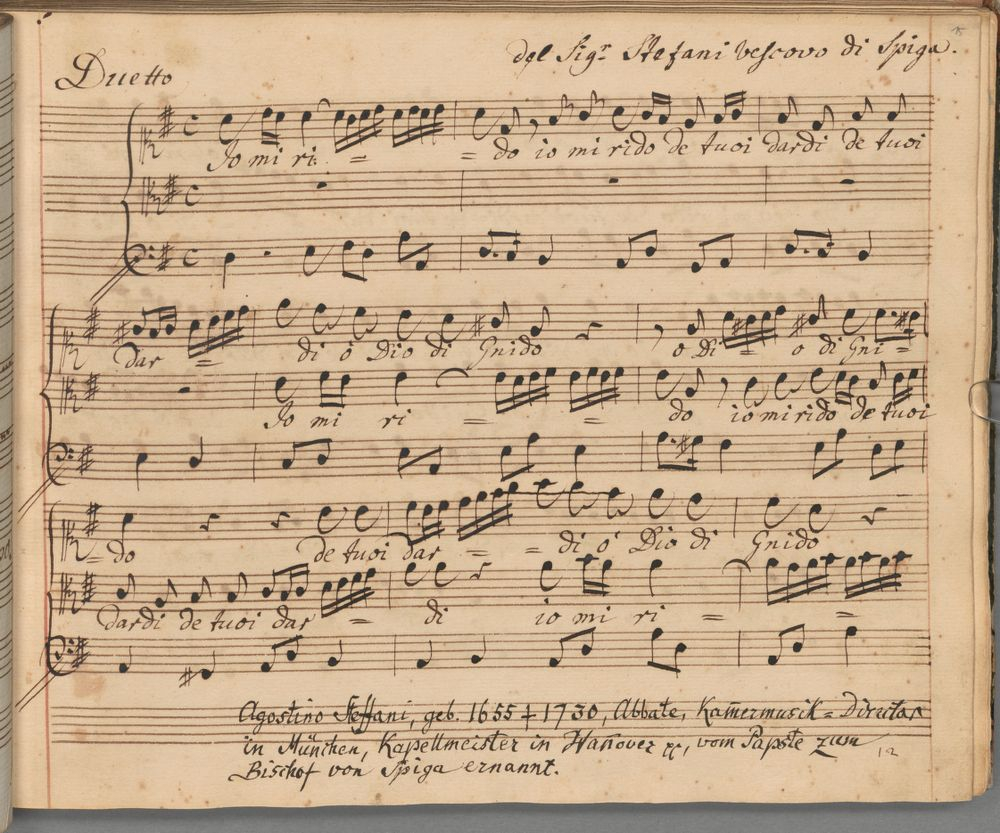 Duetto
del Sigr Stefani Vescovo di Spiga.
Io mi ri = = do io mi rido de tuoi dardi de tuoi
dar = di ò Dio di Gnido o Di = o di Gni =
Io mi ri = = do io mi rido de tuoi
= do de tuoi dar = = di ò Dio di Gnido
dardi de tuoi dar = di io mi ri = =
Agostino Steffani, geb. 1655 † 1730, Abbate, Kam̄ermusik = Director
in München, Kapellmeister in Han̄over, vom Papste zum
Bischof von Spiga ernannt.
12